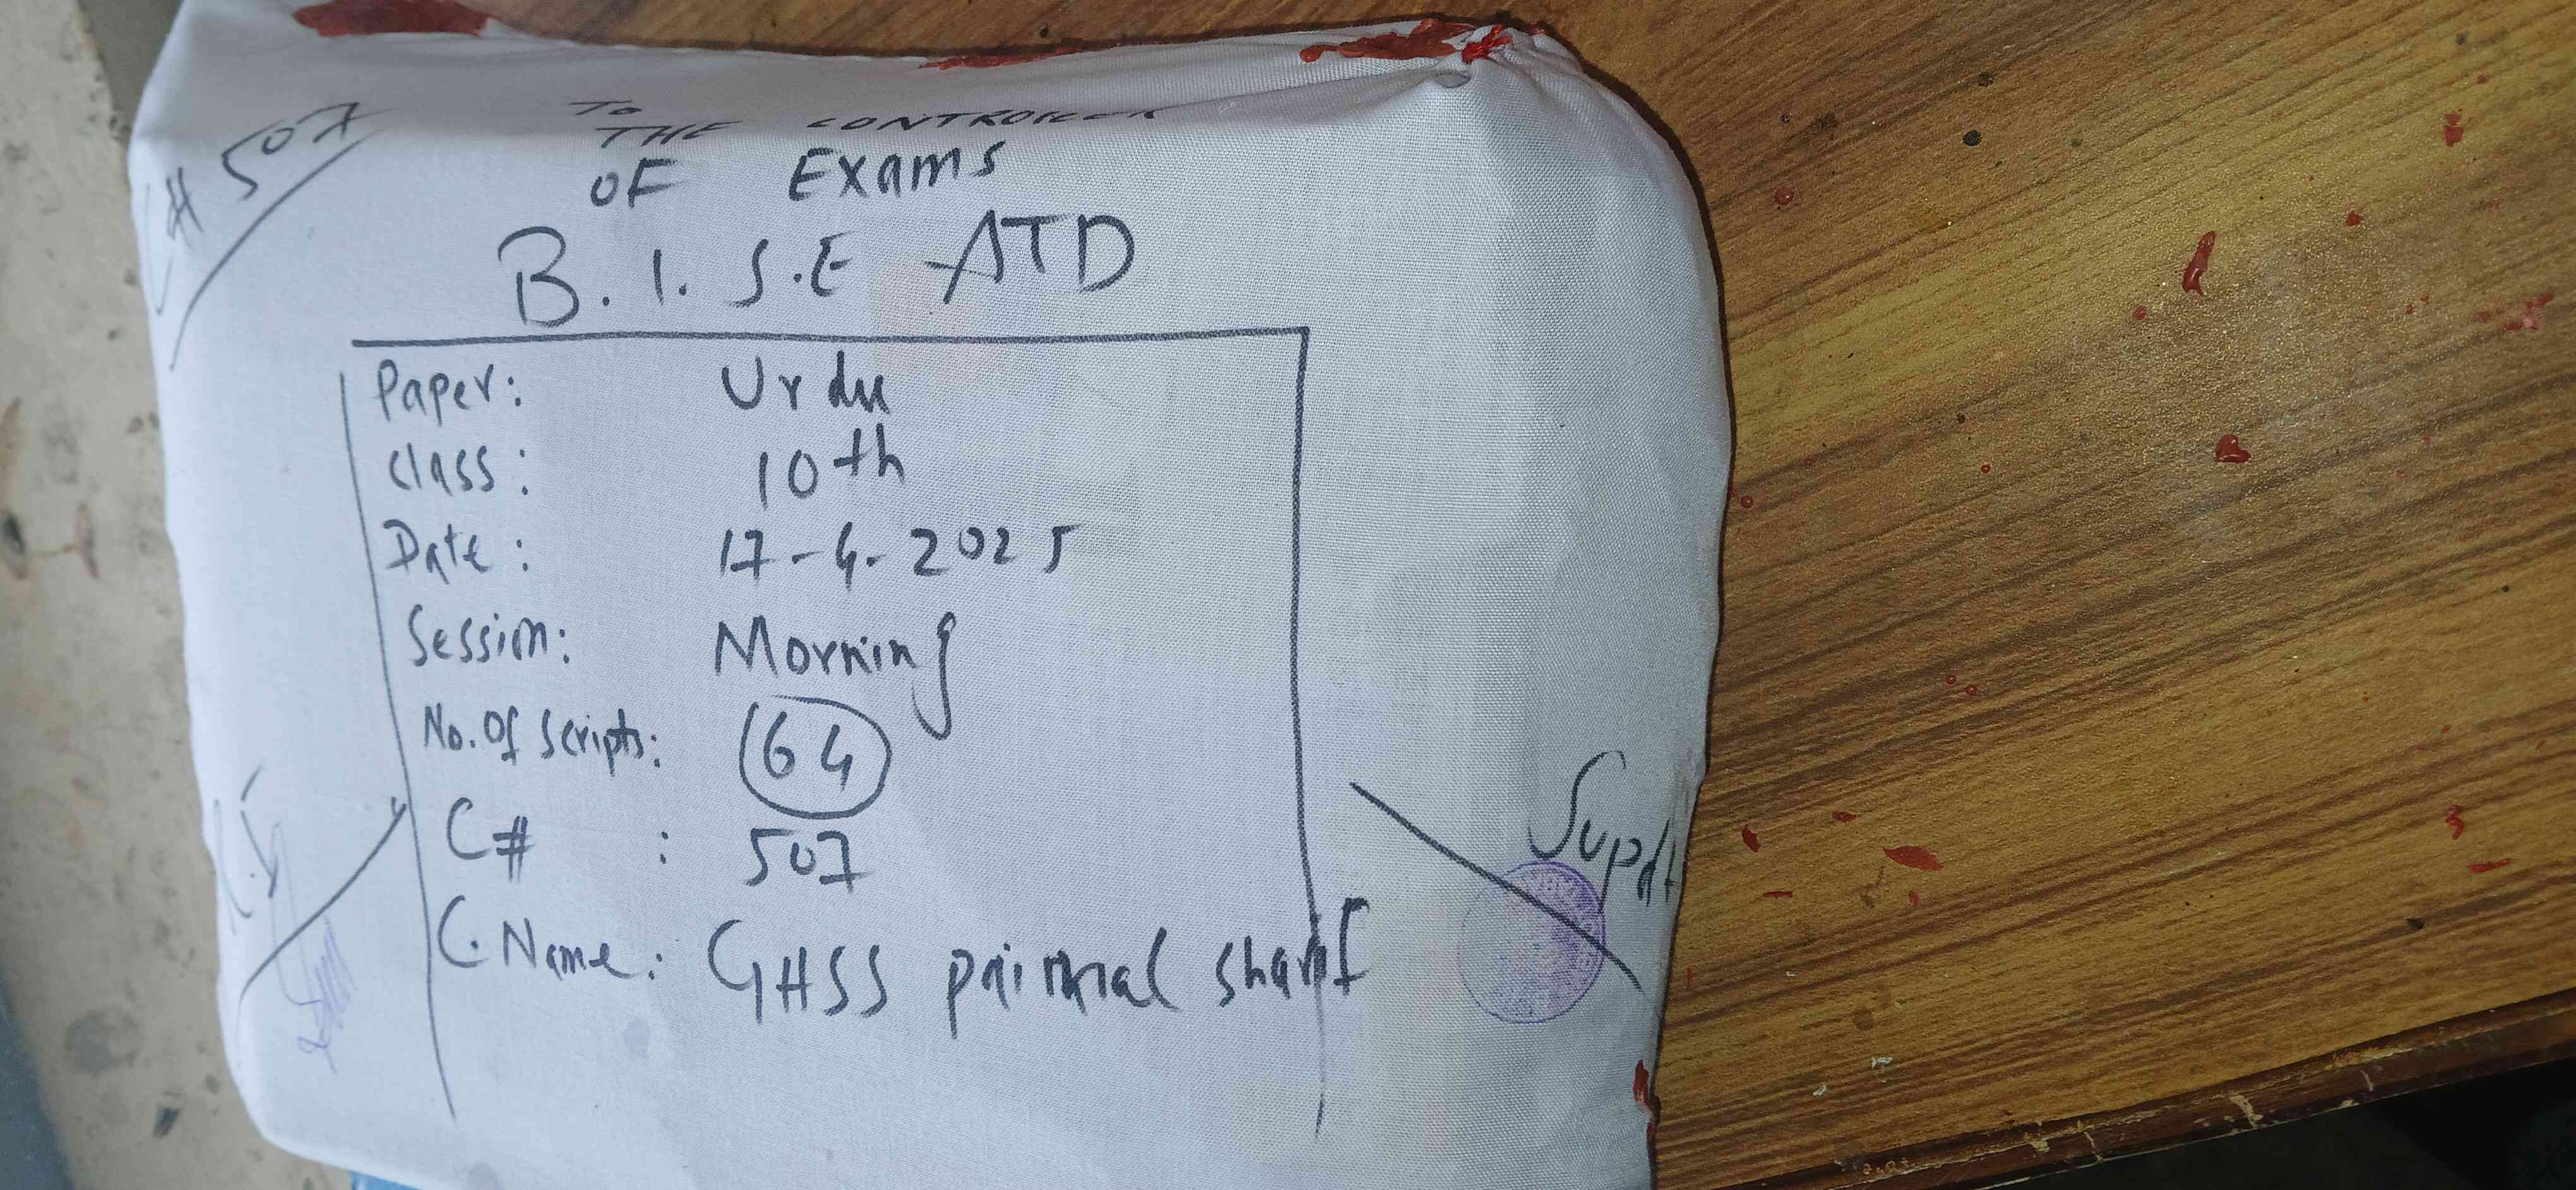 C# 507
To
THE CONTROLLER
OF Exams
B.I.S.E ATD
Paper: Urdu
class: 10th
Date: 17-4-2025
Session: Morning
No. Of Scripts: 64
C# : 507
C.Name: GHSS primal sharif
Supdt